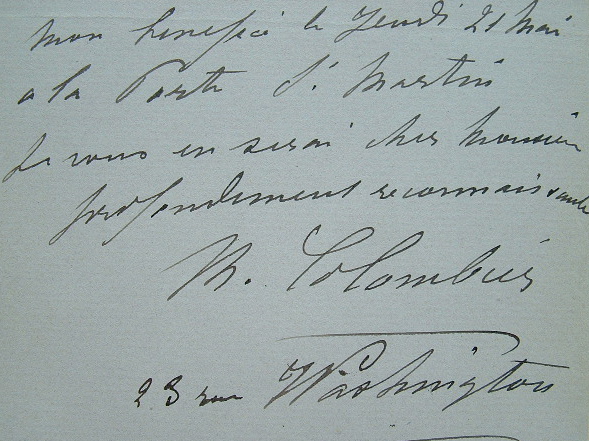 mon bénéfice le Jeudi 21 Mai
a la Porte St. Martin
Je vous en serai cher Monsieur
profondement reconnaissante
M. Colombier
23 rue Washington